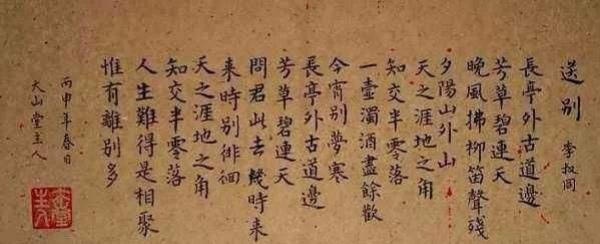 送别
李叔同
長亭外古道邊
芳草碧連天
晚風拂柳笛聲殘
夕陽山外山
天之涯地之角
知交半零落
一壺濁酒盡餘歡
今宵别夢寒
長亭外古道邊
芳草碧連天
問君此去幾時來
來時别徘徊
天之涯地之角
知交半零落
人生難得是相聚
惟有離别多
丙申年春日
大山堂主人